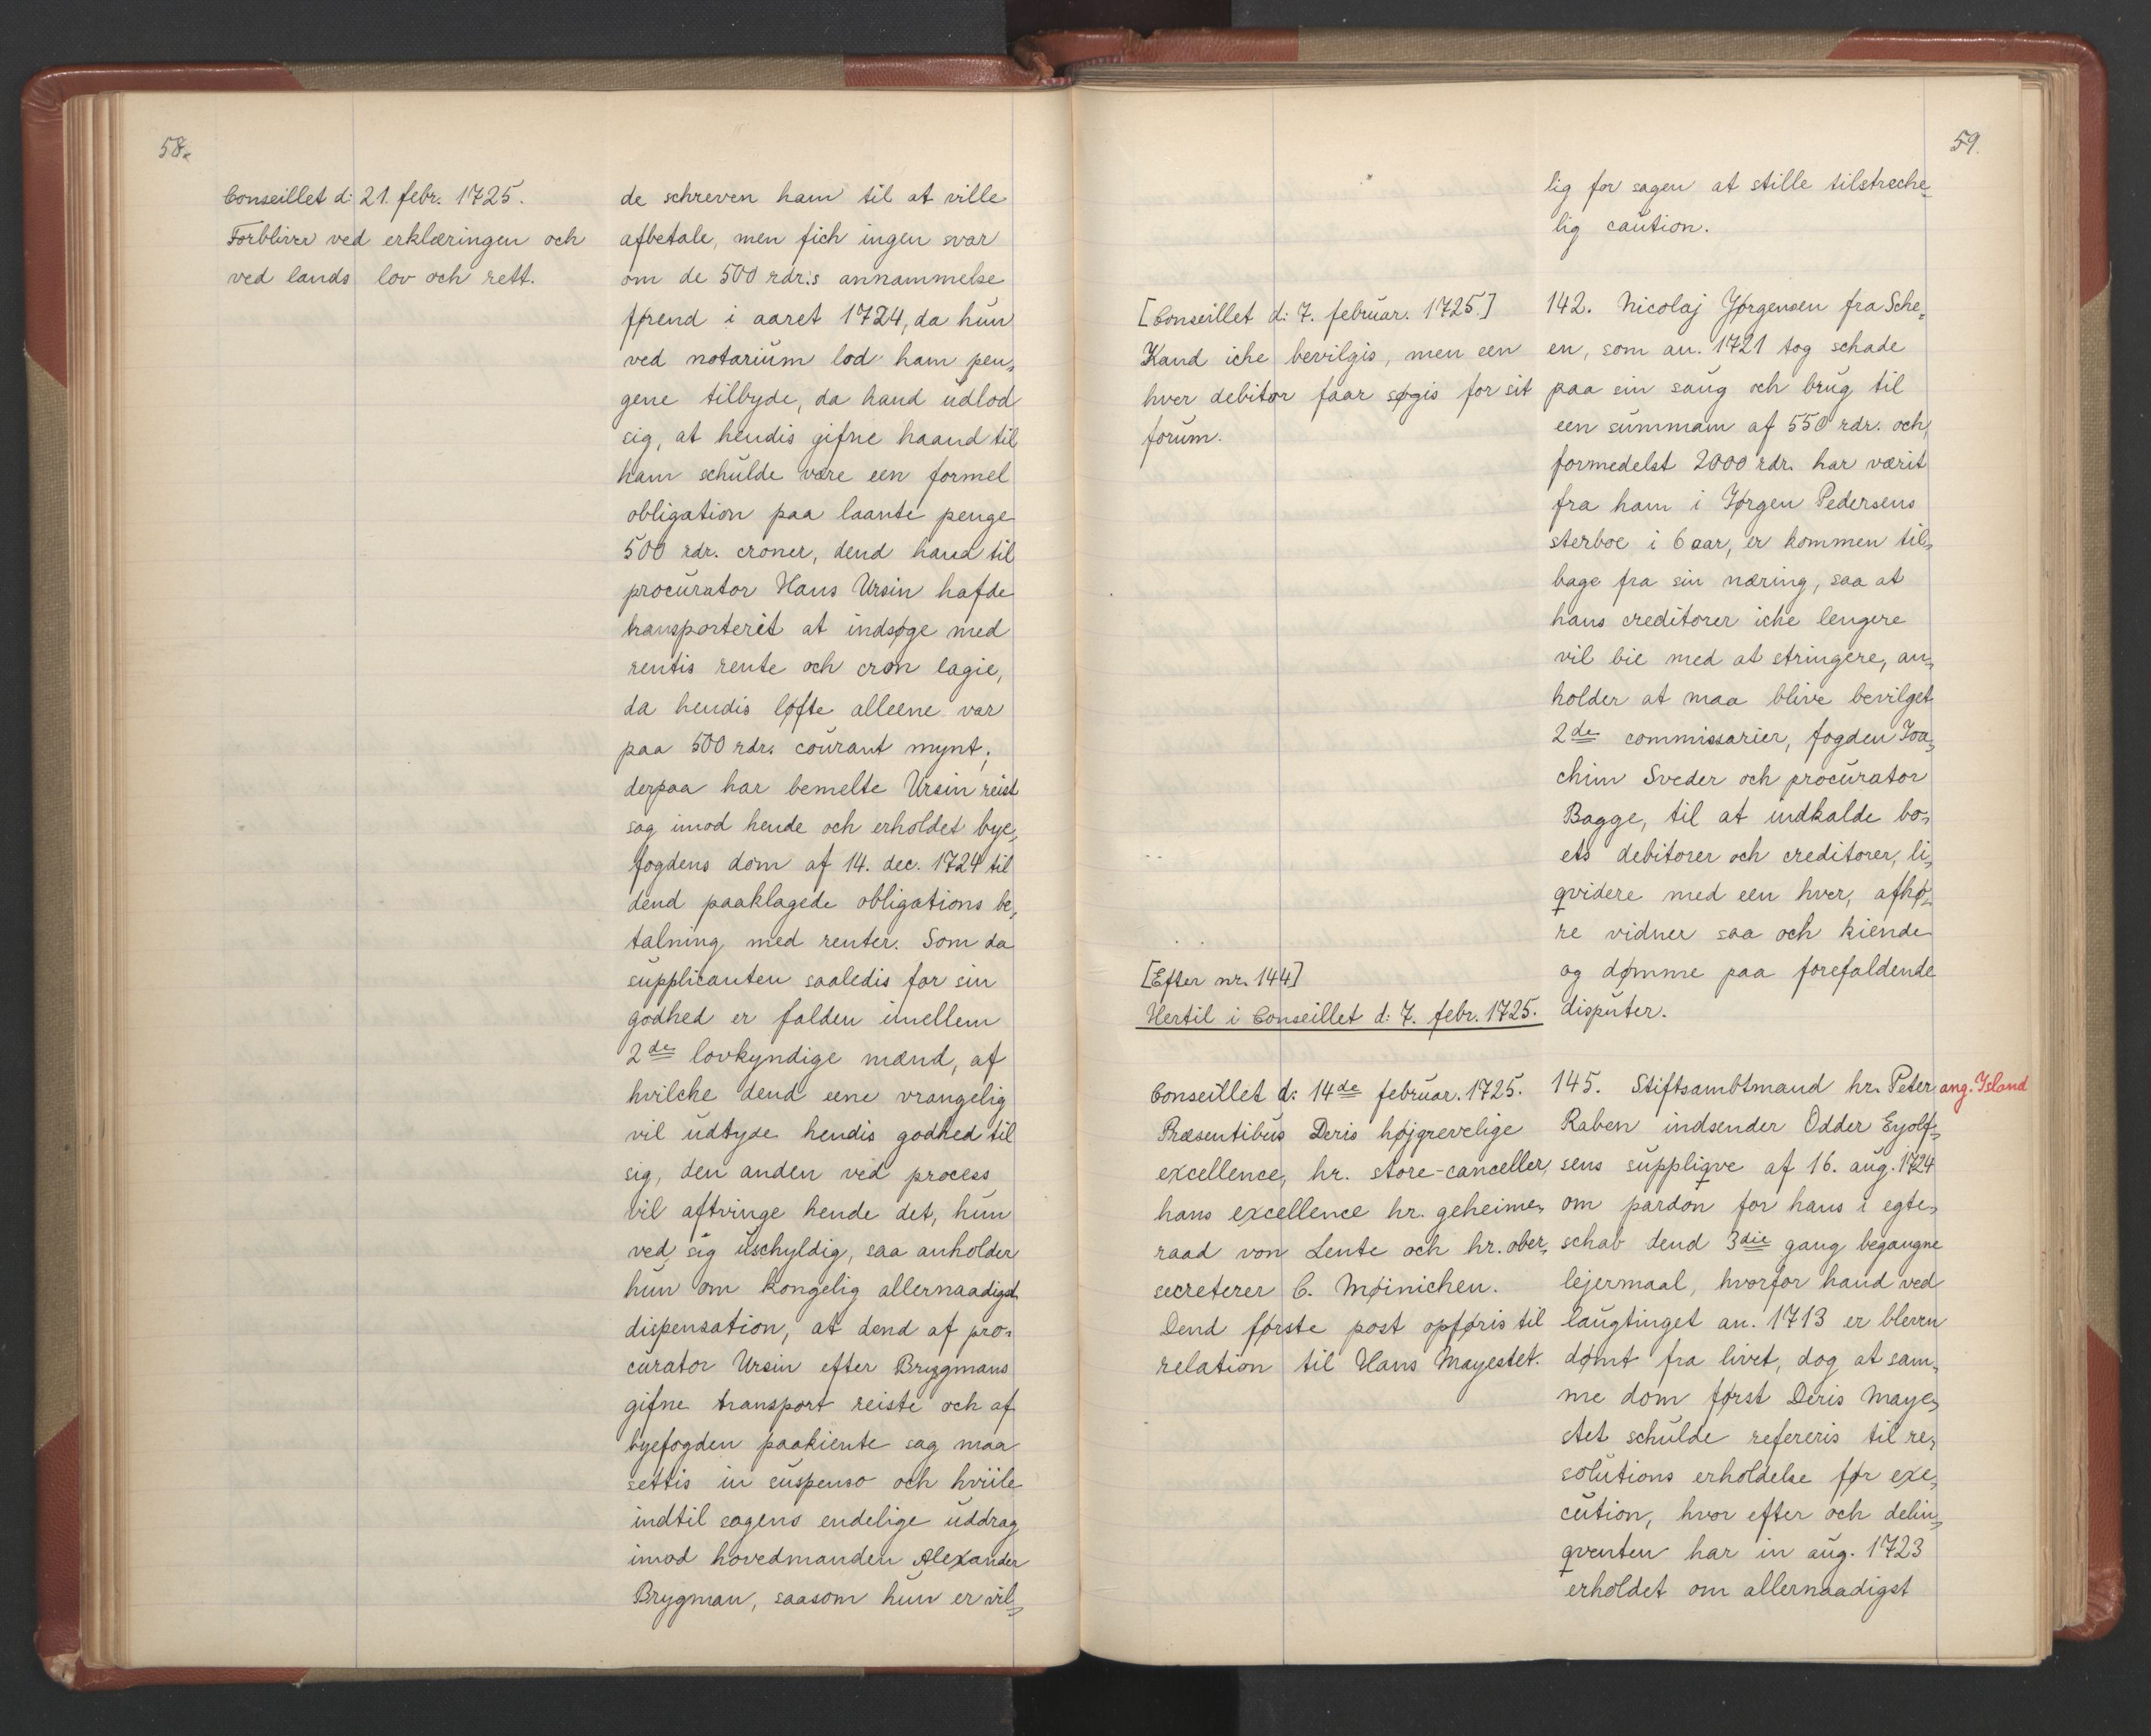 58.
Conseillet d: 21. febr. 1725.
Forbliver ved erklæringen och
ved lands lov och rett.
de schreven ham til at ville
afbetale, men fich ingen svar
om de 500 rdr:s annammelse
førend i aaret 1724, da hun
ved notarium lod ham pen-
gene tilbyde, da hand udlod
sig, at hendis gifne haand til
ham schulde være een formel
obligation paa laante penge
500 rdr. croner, dend hand til
procurator Hans Ursin hafde
transporterit at indsøge med
rentis rente och cron lagie,
da hendis løfte alleene var
paa 500 rdr. courant mynt;
derpaa har bemelte Ursin reist
sag imod hende och erholdet bye-
fogdens dom af 14. dec. 1724 til
dend paaklagede obligations be-
talning med renter. Som da
supplicanten saaledis for sin
godhed er falden imellem
2de lovkyndige mænd, af
hvilche dend eene vrangelig
vil udtyde hendis godhed til
sig, den anden ved process
vil aftvinge hende det, hun
ved sig uschyldig, saa anholder
hun om kongelig allernaadigst
dispensation, at dend af pro-
curator Ursin efter Brygmans
gifne transport reiste och af
byefogden paakiente sag maa
settis in suspenso och hviile
indtil sagens endelige uddrag
imod hovedmanden Alexander
Brygman, saasom hun er vil-
59.
lig for sagen at stille tilstreche-
lig caution.
[Conseillet d: 7. februar. 1725.]
Kand iche bevilgis, men een
hver debitor faar søgis for sit
forum.
142. Nicolaj Jørgensen fra Sche-
en, som an. 1721 tog schade
paa sin saug och brug til
een summam af 550 rdr. och,
formedelst 2000 rdr. har værit
fra ham i Jørgen Pedersens
sterboe i 6 aar, er kommen til-
bage fra sin næring, saa at
hans creditorer iche lengere
vil bie med at stringere, an-
holder at maa blive bevilget
2de commissarier, fogden Joa-
chim Sveder och procurator
Bagge, til at indkalde bo-
ets debitorer och creditorer, li-
qvidere med een hver, afhø-
re vidner saa och kiende
og dømme paa forefaldende
disputer.
[Efter nr. 144]
Hertil i Conseillet d: 7. febr. 1725.
Conseillet d: 14de februar. 1725.
Præsentibus Deris højgrevelige
excellence, hr. store-canceller,
hans excellence hr. geheime-
raad von Lente och hr. ober-
secreterer C. Møinichen.
Dend første post opføris til
relation til Hans Mayestet.
145. Stiftsambtmand hr. Peter
ang. Island
Raben indsender Odder Eyolf-
sens suppliqve af 16. aug. 1724
om pardon for hans i egte-
schab dend 3die gang begangne
lejermaal, hvorfor hand ved
laugtinget an. 1713 er bleven
dømt fra livet, dog at sam-
me dom først Deris Maye-
stet schulde refereris til re-
solutions erholdelse før exe-
cution, hvor efter och delin-
qventen har in aug. 1723
erholdet om allernaadigst